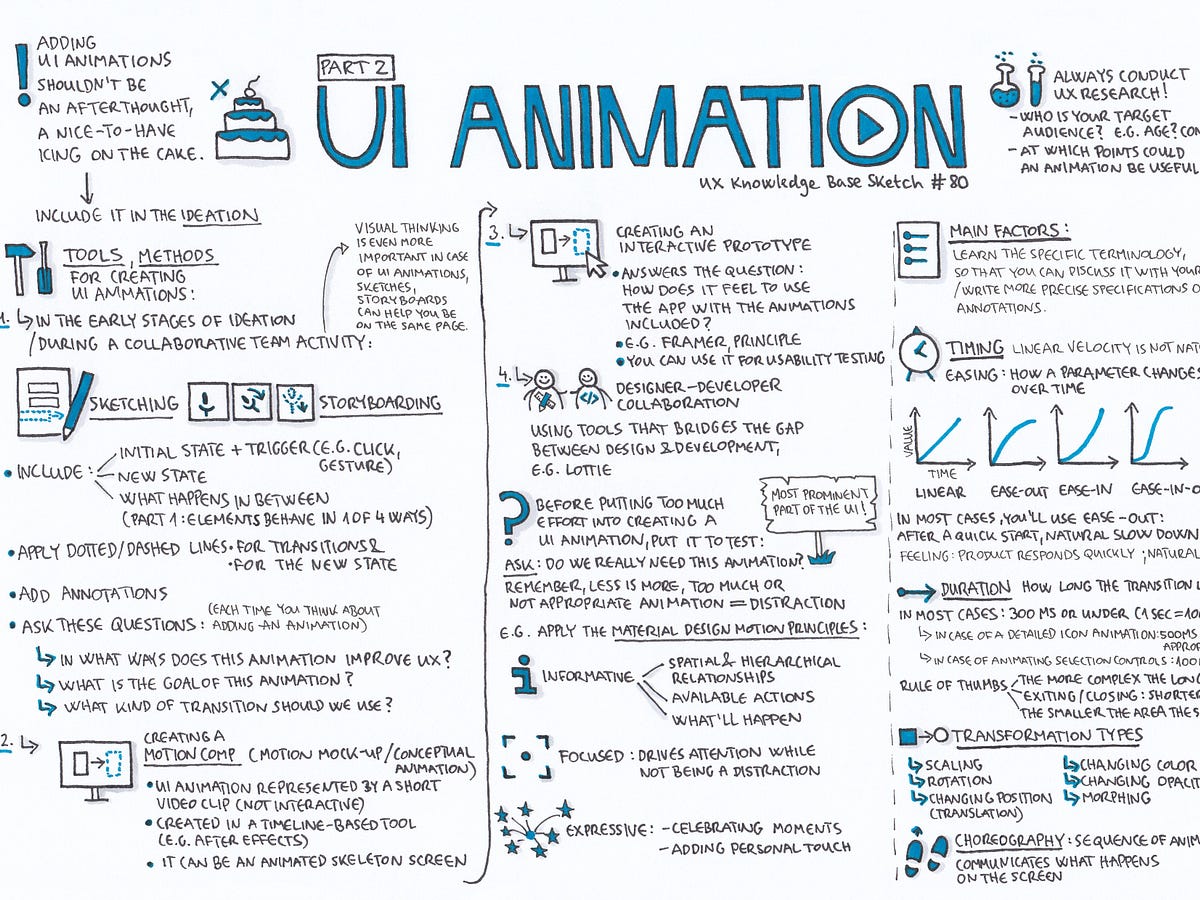 ADDING
UI ANIMATIONS
SHOULDN'T BE
AN AFTERTHOUGHT,
A NICE-TO-HAVE
ICING ON THE CAKE.
INCLUDE IT IN THE IDEATION
PART 2
UI ANIMATION
UX Knowledge Base Sketch #80
ALWAYS CONDUCT
UX RESEARCH!
- WHO IS YOUR TARGET
AUDIENCE? E.G. AGE?
- AT WHICH POINTS COULD
AN ANIMATION BE USEFUL
TOOLS, METHODS
FOR CREATING
UI ANIMATIONS:
1. IN THE EARLY STAGES OF IDEATION
/DURING A COLLABORATIVE TEAM ACTIVITY:
VISUAL THINKING
IS EVEN MORE
IMPORTANT IN CASE
OF UI ANIMATIONS,
SKETCHES,
STORYBOARDS
CAN HELP YOU BE
ON THE SAME PAGE.
SKETCHING
STORYBOARDING
• INCLUDE:
INITIAL STATE + TRIGGER (E.G. CLICK,
GESTURE)
NEW STATE
WHAT HAPPENS IN BETWEEN
(PART 1: ELEMENTS BEHAVE IN 1 OF 4 WAYS)
• APPLY DOTTED/DASHED LINES • FOR TRANSITIONS &
• FOR THE NEW STATE
• ADD ANNOTATIONS
• ASK THESE QUESTIONS: (EACH TIME YOU THINK ABOUT
ADDING AN ANIMATION)
IN WHAT WAYS DOES THIS ANIMATION IMPROVE UX?
WHAT IS THE GOAL OF THIS ANIMATION?
WHAT KIND OF TRANSITION SHOULD WE USE?
2. CREATING A
MOTION COMP (MOTION MOCK-UP/CONCEPTUAL
ANIMATION)
• UI ANIMATION REPRESENTED BY A SHORT
VIDEO CLIP (NOT INTERACTIVE)
• CREATED IN A TIMELINE-BASED TOOL
(E.G. AFTER EFFECTS)
• IT CAN BE AN ANIMATED SKELETON SCREEN
3. CREATING AN
INTERACTIVE PROTOTYPE
• ANSWERS THE QUESTION:
HOW DOES IT FEEL TO USE
THE APP WITH THE ANIMATIONS
INCLUDED?
• E.G. FRAMER, PRINCIPLE
• YOU CAN USE IT FOR USABILITY TESTING
4. DESIGNER-DEVELOPER
COLLABORATION
USING TOOLS THAT BRIDGES THE GAP
BETWEEN DESIGN & DEVELOPMENT,
E.G. LOTTIE
? BEFORE PUTTING TOO MUCH
EFFORT INTO CREATING A
UI ANIMATION, PUT IT TO TEST:
MOST PROMINENT
PART OF THE UI!
ASK: DO WE REALLY NEED THIS ANIMATION?
REMEMBER, LESS IS MORE, TOO MUCH OR
NOT APPROPRIATE ANIMATION = DISTRACTION
E.G. APPLY THE MATERIAL DESIGN MOTION PRINCIPLES:
INFORMATIVE
SPATIAL & HIERARCHICAL
RELATIONSHIPS
AVAILABLE ACTIONS
WHAT'LL HAPPEN
FOCUSED: DRIVES ATTENTION WHILE
NOT BEING A DISTRACTION
EXPRESSIVE: - CELEBRATING MOMENTS
- ADDING PERSONAL TOUCH
MAIN FACTORS:
LEARN THE SPECIFIC TERMINOLOGY,
SO THAT YOU CAN DISCUSS IT WITH YOUR
/WRITE MORE PRECISE SPECIFICATIONS
ANNOTATIONS.
TIMING LINEAR VELOCITY IS NOT
EASING: HOW A PARAMETER CHANGES
OVER TIME
VALUE
TIME
LINEAR EASE-OUT EASE-IN EASE-IN-O
IN MOST CASES, YOU'LL USE EASE-OUT:
AFTER A QUICK START, NATURAL SLOW DOWN
FEELING: PRODUCT RESPONDS QUICKLY; NATURAL
DURATION HOW LONG THE TRANSITION
IN MOST CASES: 300 MS OR UNDER (1 SEC =
IN CASE OF A DETAILED ICON ANIMATION: 500MS
IN CASE OF ANIMATING SELECTION CONTROLS:
RULE OF THUMBS
THE MORE COMPLEX THE
EXITING/CLOSING: SHORTER
THE SMALLER THE AREA THE
TRANSFORMATION TYPES
SCALING
ROTATION
CHANGING POSITION
(TRANSLATION)
CHANGING COLOR
CHANGING
MORPHING
CHOREOGRAPHY: SEQUENCE OF
COMMUNICATES WHAT HAPPENS
ON THE SCREEN